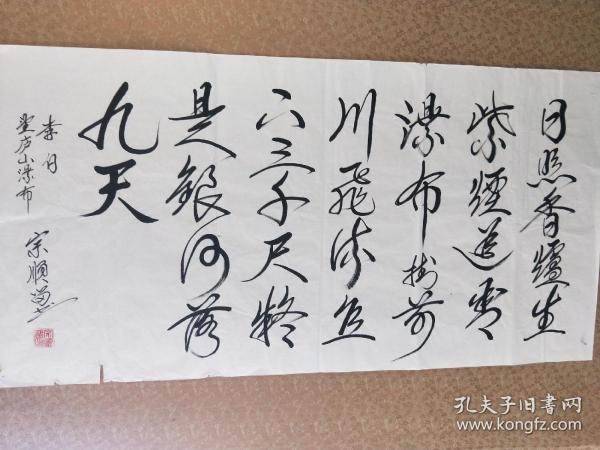 日照香爐生
紫煙遥看
瀑布掛前
川飛流直
下三千尺疑
是銀河落
九天
李白
望庐山瀑布
宗順
孔夫子旧书网
www.kongfz.com